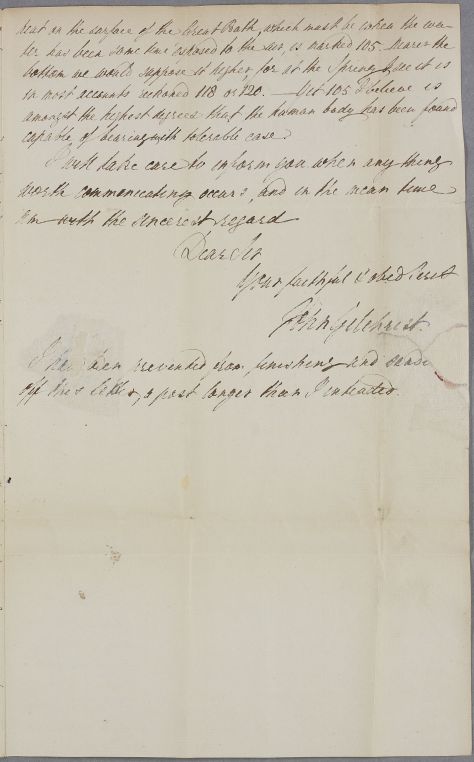 heat on the surface of the Great Bath, which must be when the wa-
ter has been some time exposed to the air, is marked 105. Nearer the
bottom we would suppose it higher, for at the Spring I see it is
in most accounts reckoned 118 or 120. — Yet 105 I believe is
amongst the highest degrees that the human body has been found
capable of bearing with tolerable ease.
I will take care to inform you when any thing
worth communicating occurs, and in the mean time
am with the sincerest regard
Dear Sir
Your faithful & obed Servt
John Gilchrist.
I have been prevented from finishing and send
off this letter, a post longer than I intended.